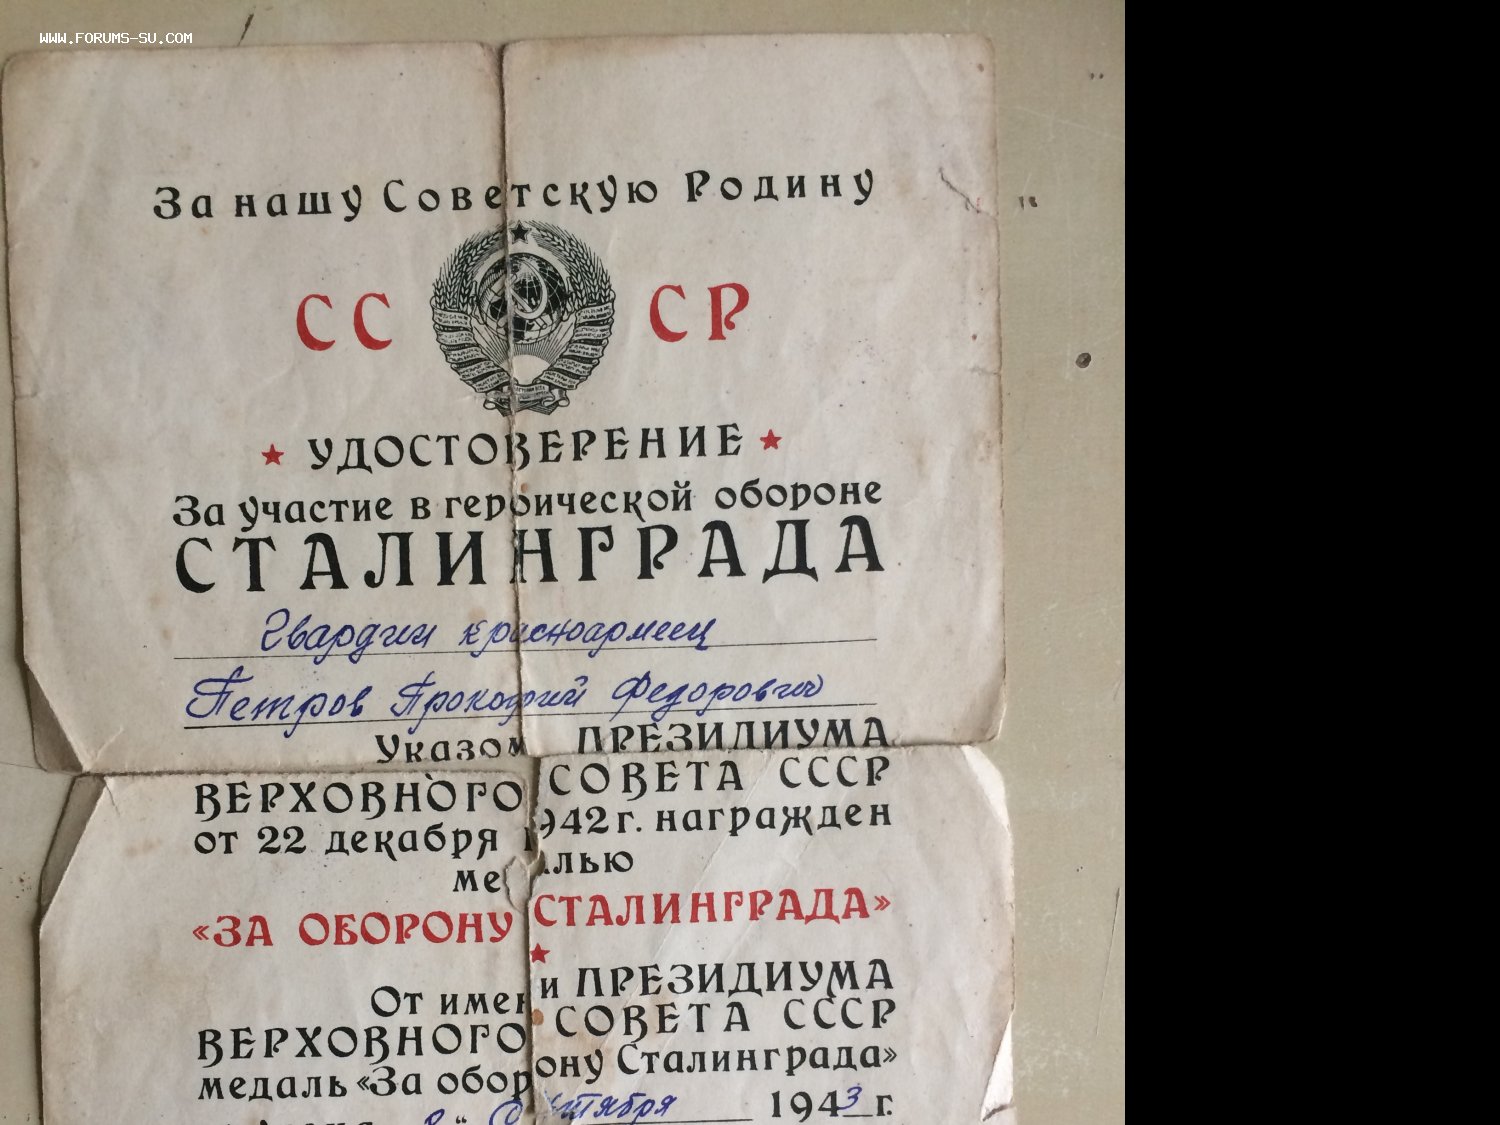 WWW.FORUMS-SU.COM
За нашу Советскую Родину
СС СР
УДОСТОВЕРЕНИЕ
За участие в героической обороне
СТАЛИНГРАДА
Гвардии красноармеец
Петров Прокофий Федорович
Указом ПРЕЗИДИУМА
ВЕРХОВНОГО СОВЕТА СССР
от 22 декабря 1942 г. награжден
медалью
«ЗА ОБОРОНУ СТАЛИНГРАДА»
От имени ПРЕЗИДИУМА
ВЕРХОВНОГО СОВЕТА СССР
медаль «За оборону Сталинграда»
Сентября 1943 г.